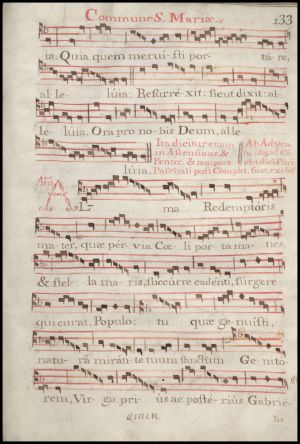 Commune S. Mariæ. 133
ia: Quia quem merui-sti por- tá-re,
al-le- lúia: Resurré-xit: sicut dixit: al-
le- lúia. Ora pro no-bis Deum, al-le-
lúia.
Ita dicitur etiam
in Ascensione &
Pentec. & tempore
Paschali post Complet.
Ab Adven
AL ma Redemptoris
ma-ter, quæ pér-via Cæ-li porta ma-nes,
& stel- la ma-ris, succúrre cadénti, súrgere
qui curat, Populo: tu quæ genuisti,
natu-râ mirán-te tuum sanctum Ge-nito-
rem, Vir-go pri- us ac posté-rius Gabrié-
amen lis